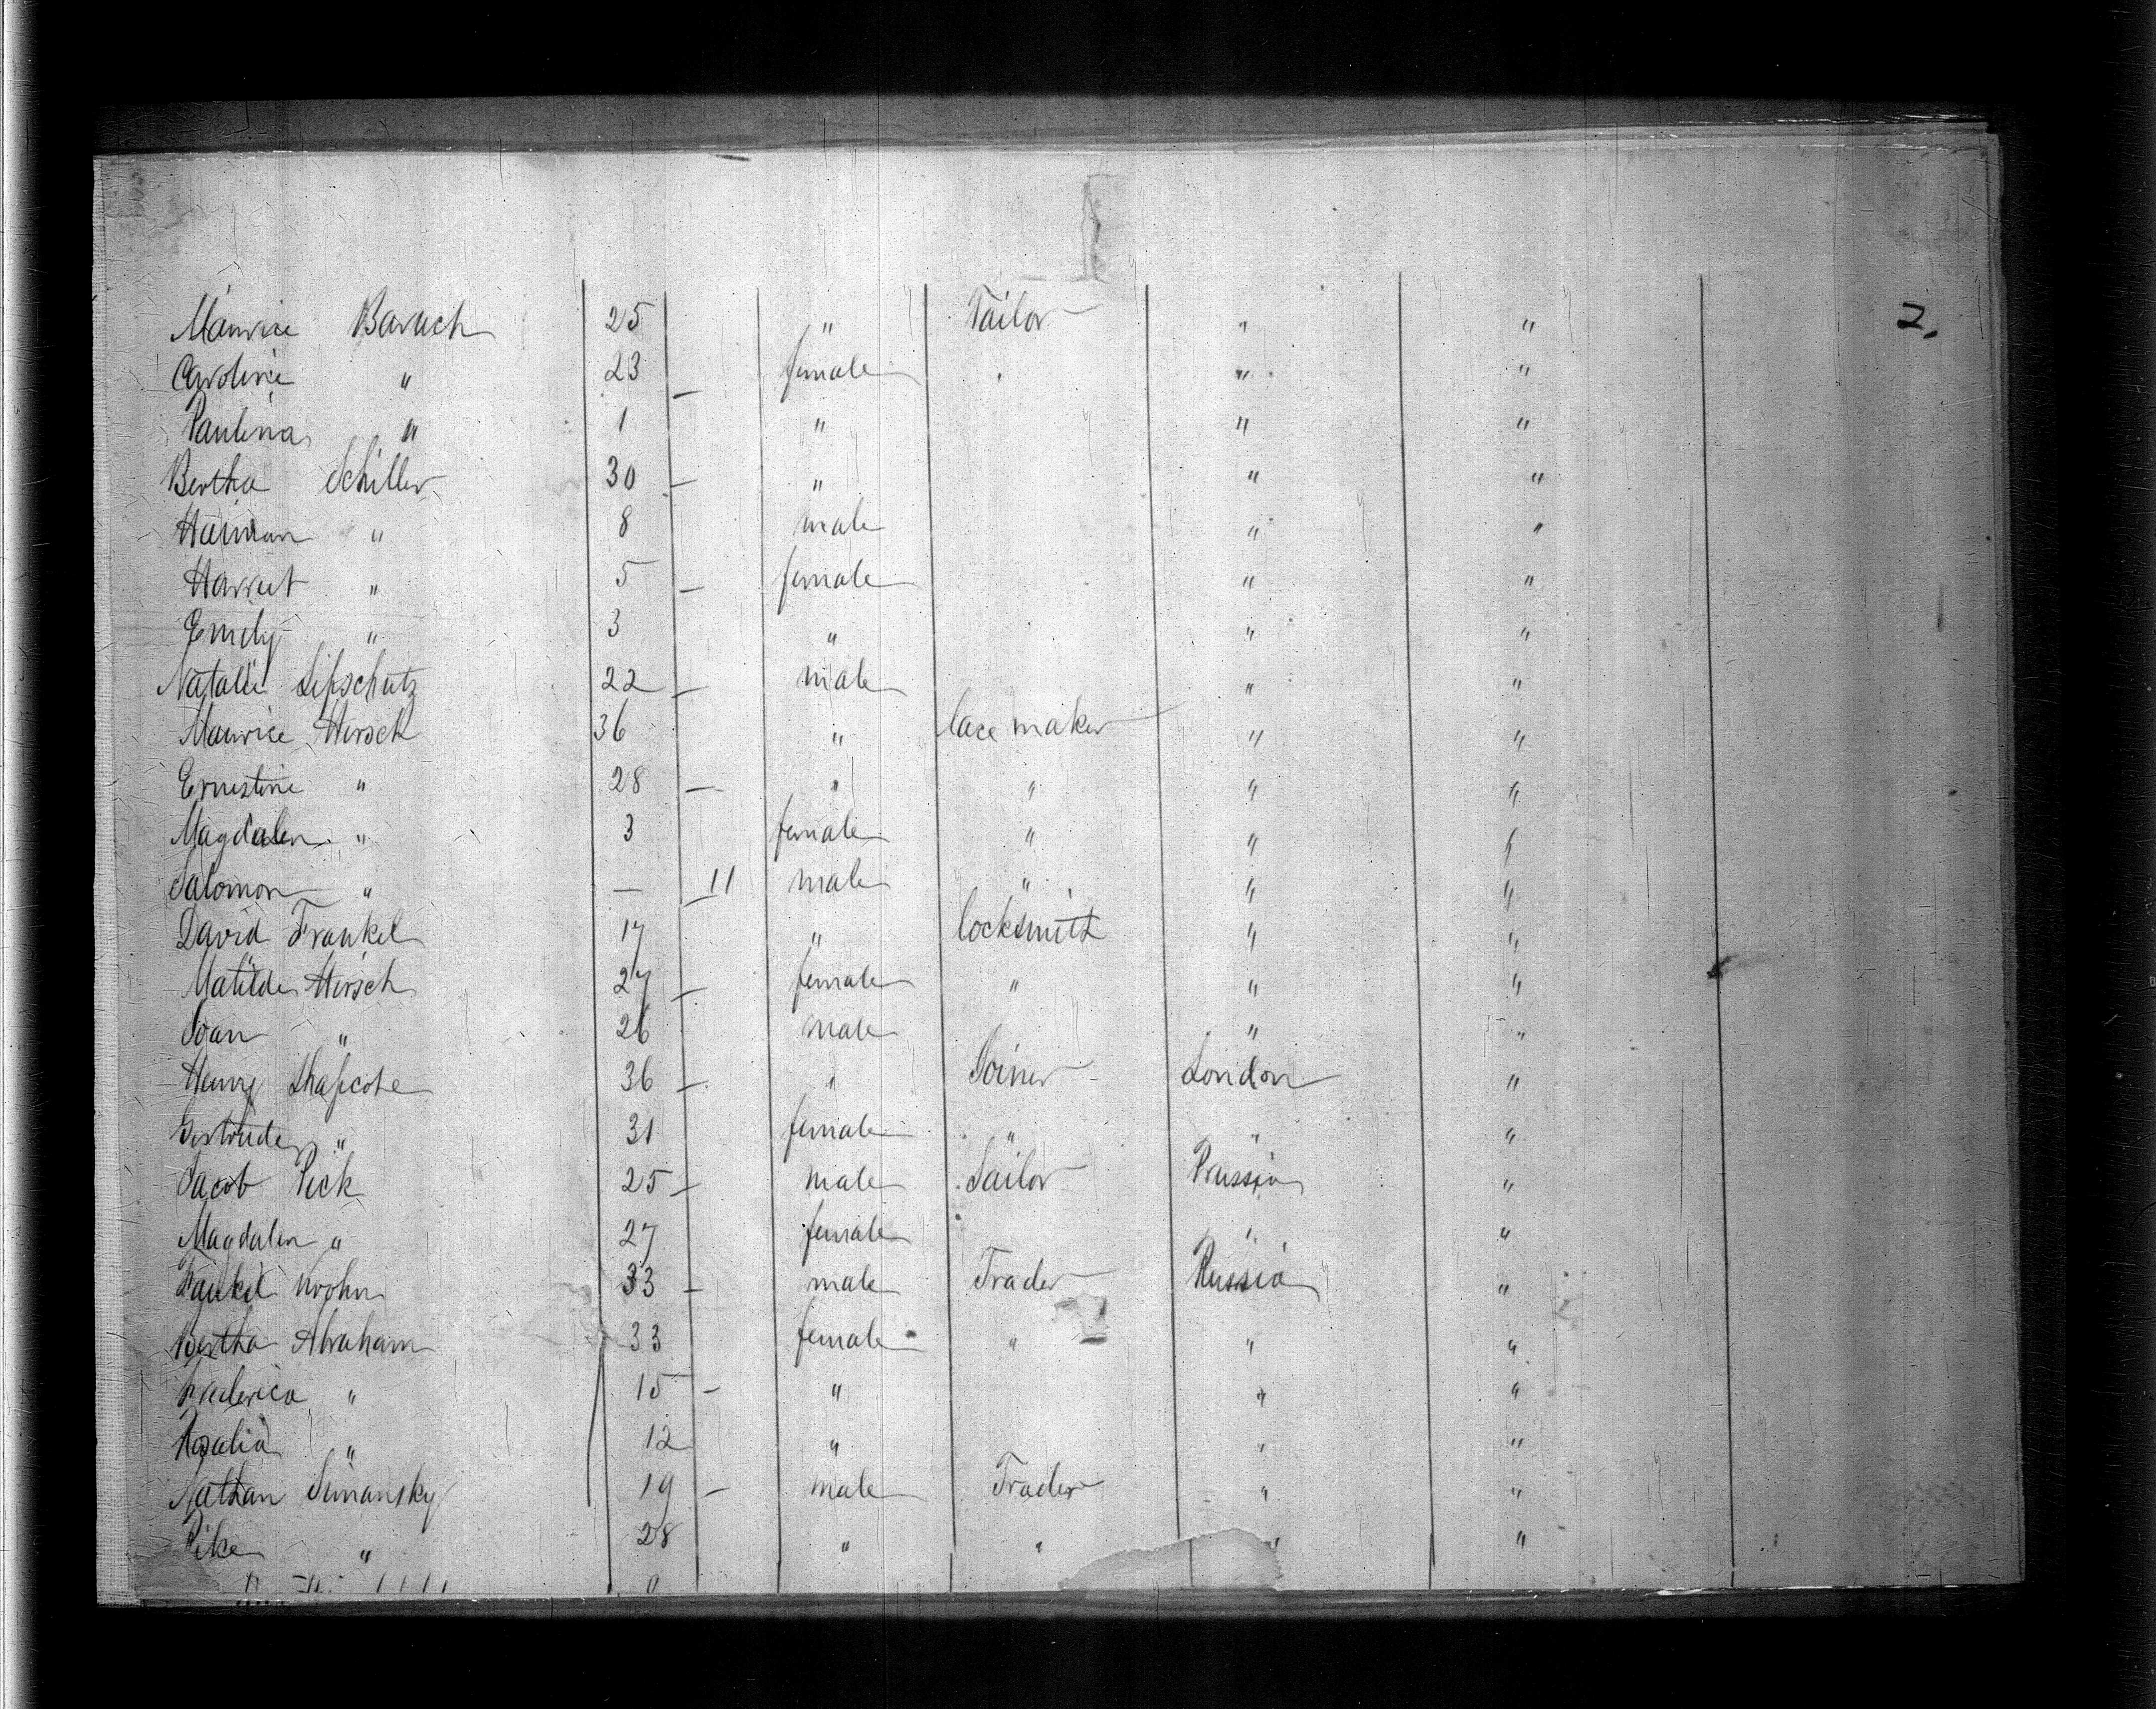 2.
Maurice Baruch 25 " Tailor " "
Caroline " 23 — female " " "
Paulina " 1 " " "
Bertha Schiller 30 — " " "
Haiman " 8 male " "
Harriet " 5 — female " "
Emily " 3 " " "
Natalie Lipschutz 22 — male " "
Maurice Hirsch 36 " lace maker " "
Ernestine " 28 — " " " "
Magdalen " 3 female " " "
Salomon " — 11 male " " "
David Frankel 17 " locksmith " "
Matilde Hirsch 27 — female " " "
Joan " 26 male " "
Henry Shapcote 36 — " Joiner London "
Gertrude " 31 female " " "
Jacob Pick 25 — male Sailor Prussia "
Magdalen " 27 female " "
Krohn 33 — male Trader Russia "
Bertha Abraham 33 female " " "
Frederica " 15 — " " "
Rosalia " 12 " " "
Nathan Simansky 19 — male Trader " "
Rike " 28 " " " "